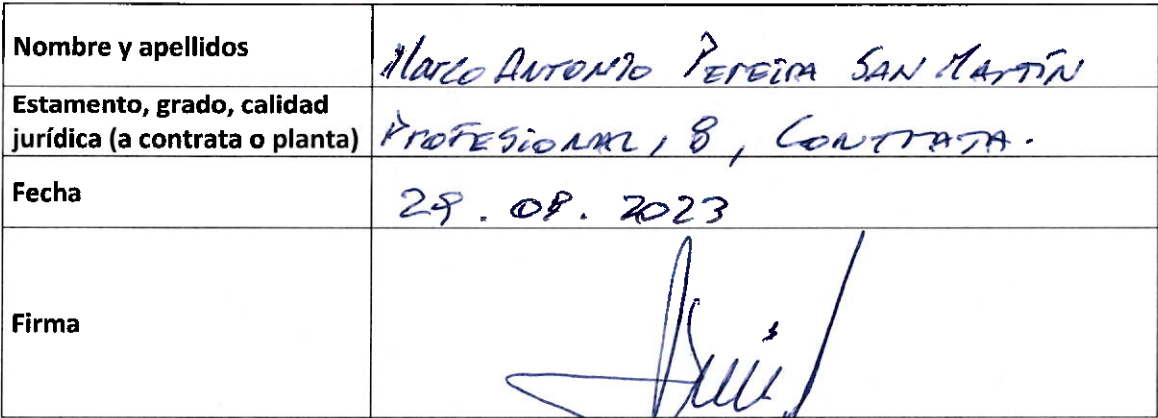 Nombre y apellidos
Marco Antonio Pereira San Martín
Estamento, grado, calidad
jurídica (a contrata o planta)
Profesional, 8, Contrata.
Fecha
29.08.2023
Firma